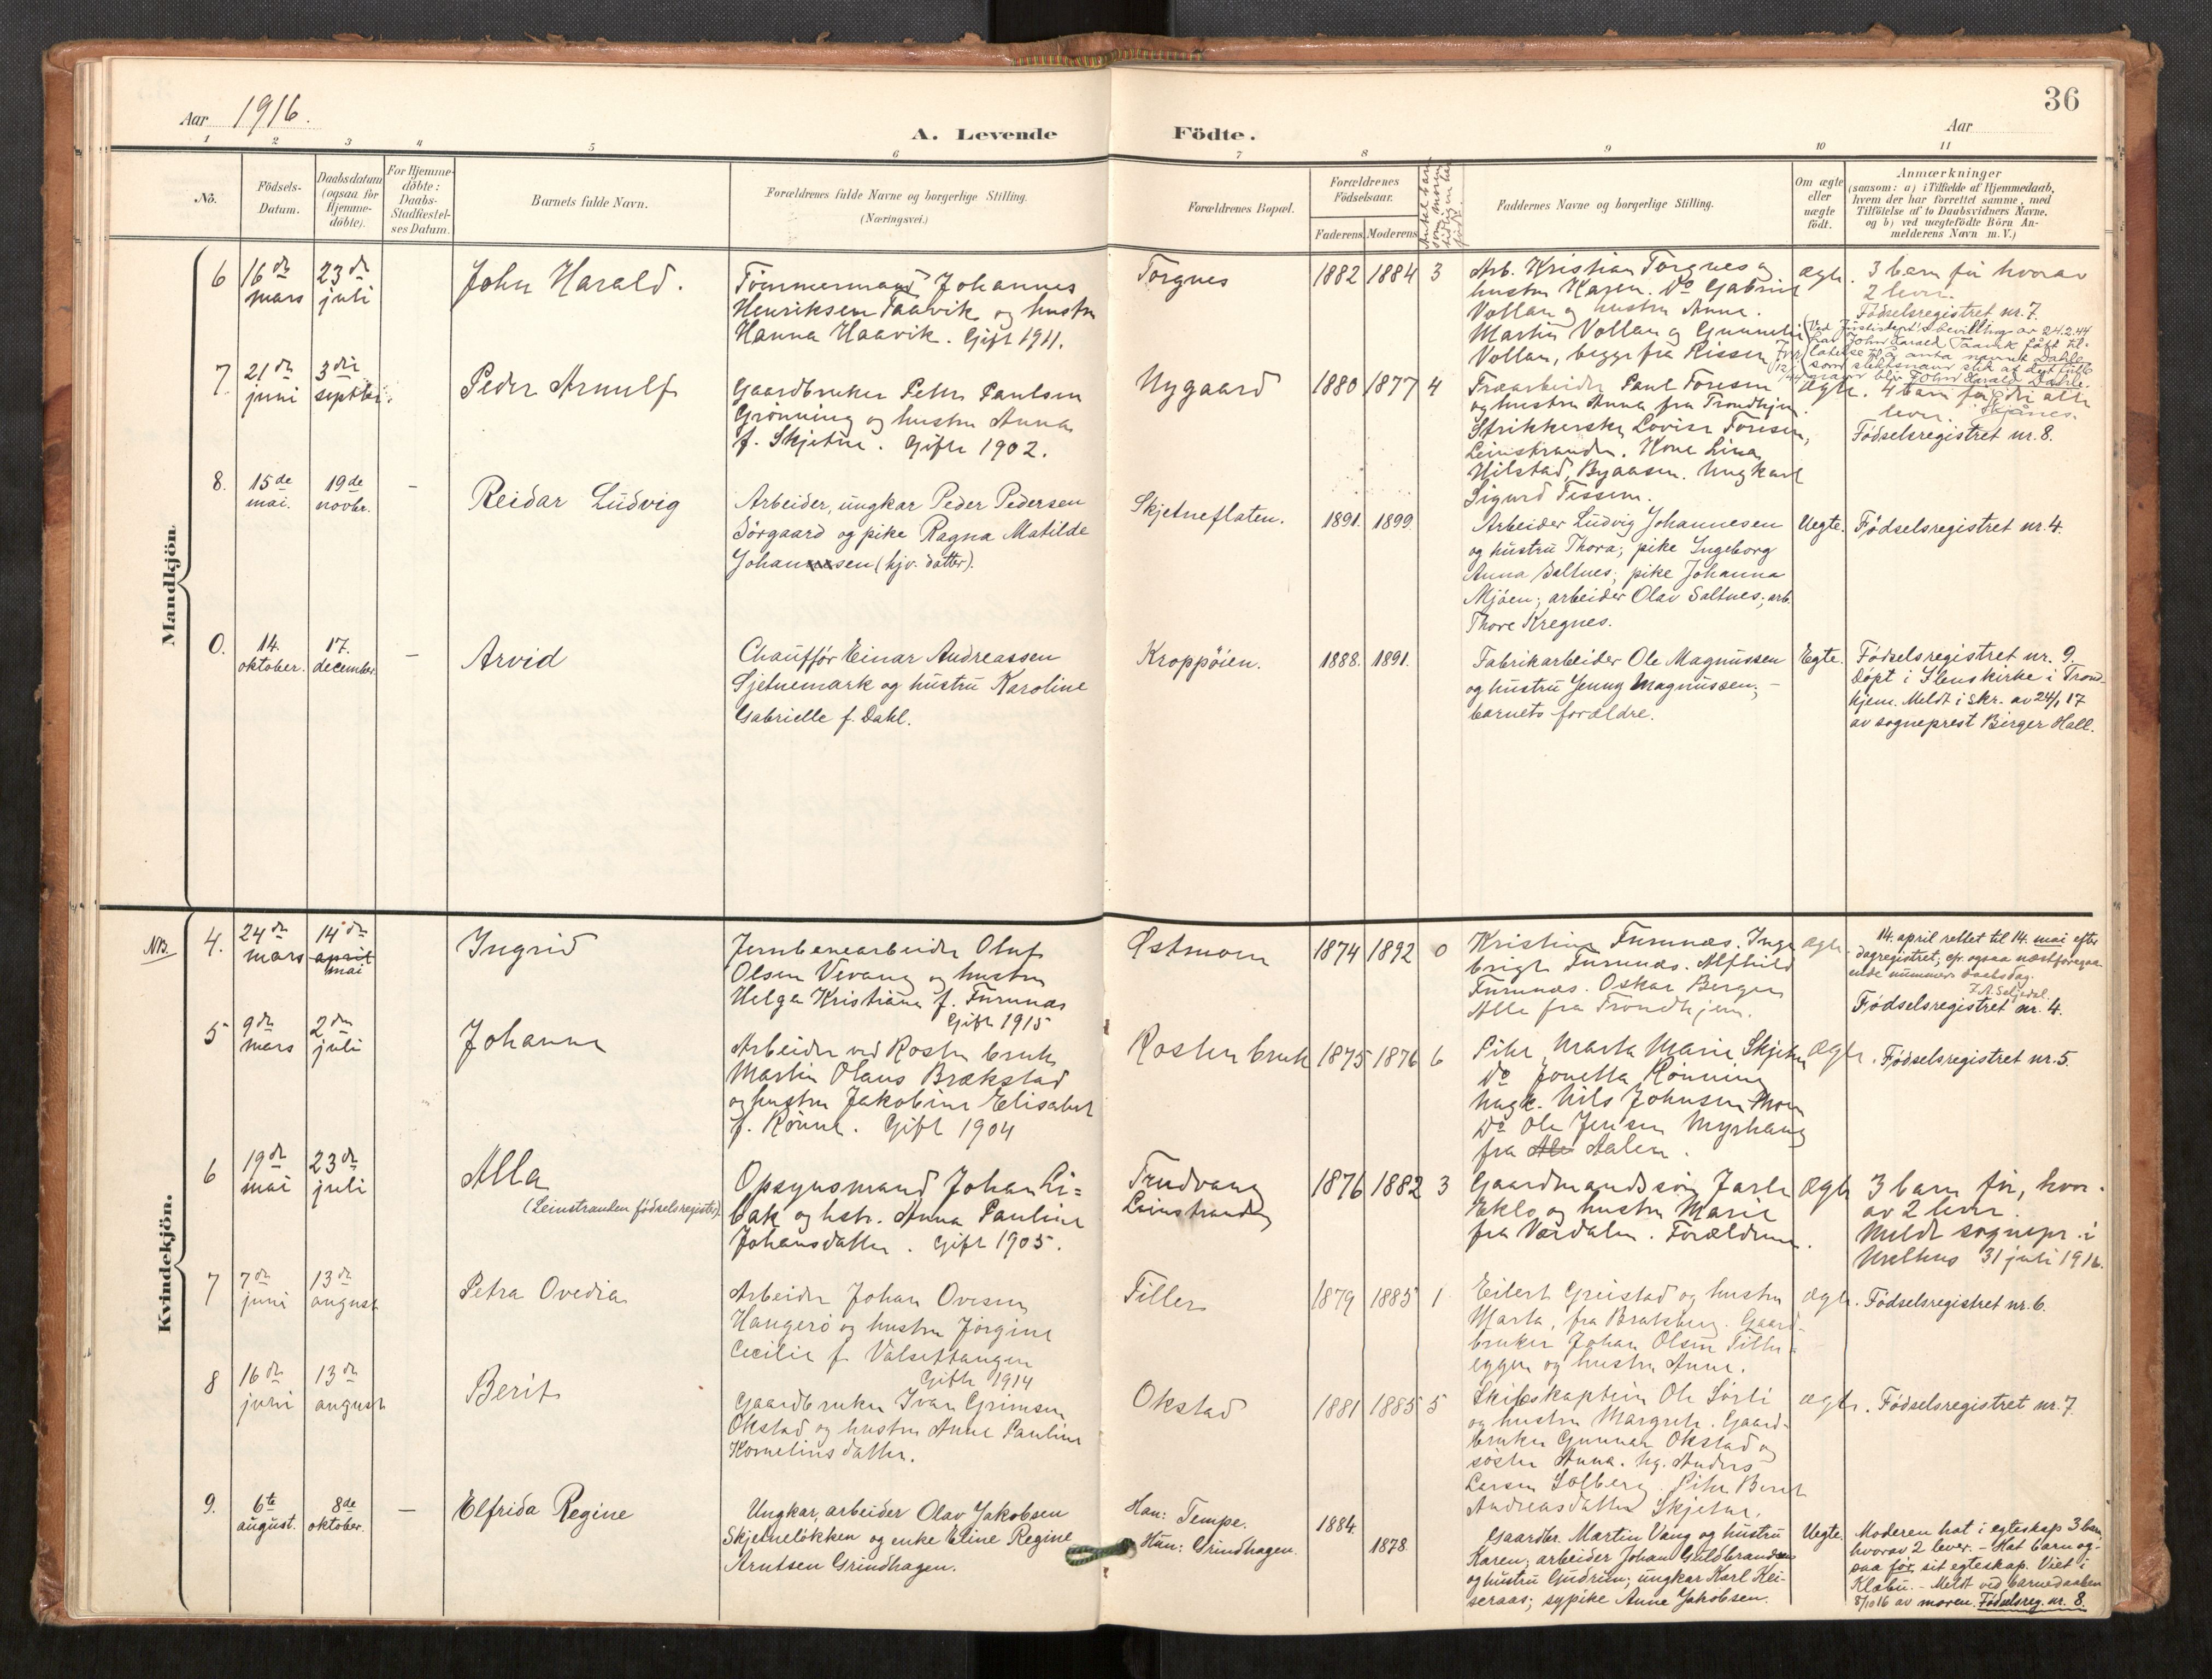 36
Aar 1916.
A. Levende Födte.
Aar
1 2 3 4 5 6 7 8 9 10 11
No.
Födsels-
Datum.
Daabsdatum
(ogsaa for
Hjemme-
döbte).
For Hjemme-
döbte:
Daabs-
Stadfæstel-
ses Datum.
Barnets fulde Navn.
Forældrenes fulde Navne og borgerlige Stilling.
(Næringsvei.)
Forældrenes Bopæl.
Forældrenes
Födselsaar.
Faderens.
Moderens.
Faddernes Navne og borgerlige Stilling.
Om ægte
eller
uægte
födt.
Anmærkninger
(saasom: a) i Tilfælde af Hjemmedaab,
hvem der har forrettet samme, med
Tilföielse af to Daabsvidners Navne,
og b) ved uægtefödte Börn An-
melderens Navn m. V.)
Mandkjön.
6
16de
mars
23de
juli
John Harald.
Tømmermand Johannes
Henriksen Taavik og hustru
Hanna Haavik. Gift 1911.
Torgnes
1882
1884
3
Arb. Kristian Torgnes og
hustru Karen. Do Gabriel
Vollan og hustru Anne.
Martin Vollan og
Vollan, begge fra Rissen
ægte.
3 barn før hvorav
2 lever.
Födselsregistret nr. 7.
Ved Justisdept's bevilling av 24.2.44
har John Harald Taavik fått til-
latelse til å anta navnet Dahle
som slektsnavn slik at det fulle
navn blir John Harald Dahle.
7.
21de
juni
3die
septbr.
Peder Arnulf
Gaardbruker Peter Paulsen
Grönning og hustru Anna
f. Skjetne. Gifte 1902.
Nygaard
1880
1877
4
Træarbeider Paul Foresen
og hustru Anna fra Trondhjem.
Strikkerske Lovise Foresen,
Leinstranden. Kone Lina
Nilstad, Byaasen. Ungkarl
Sigurd Tessem.
ægte.
4 barn før, de alle
lever.
Födselsregistret nr. 8.
8.
15de
mai.
19de
novbr.
-
Reidar Ludvig
Arbeider, ungkar Peder Pedersen
Sörgaard og pike Ragna Matilde
Johansen (hjv. datter).
Skjetneflaten.
1891.
1899.
Arbeider Ludvig Johannesen
og hustru Thora; pike Ingeborg
Anna Saltnes; pike Johanna
Mjöen; arbeider Olav Saltnes; arb.
Thore Kregnes.
Uegte.
Födselsregistret nr. 4.
0.
14.
oktober.
17.
december.
-
Arvid
Chaufför Einar Andreassen
Sjetnemark og hustru Karoline
Gabrielle f. Dahl.
Kroppöien.
1888.
1891.
Fabrikarbeider Ole Magnussen
og hustru Jenny Magnussen; -
barnets forældre.
Egte.
Födselsregistret nr. 9.
Döpt i Ilens kirke i Trond-
hjem. Meldt i skr. av 24/1 17
av sogneprest Birger Hall.
Kvindekjön.
NB.
4.
24de
mars
14de
april
mai
Ingrid
Jernbanearbeider Oluf
Olsen Vevang og hustru
Helga Kristiana f. Furunæs
Gift 1915
Østmoen
1874
1892
0
Kristine Furunæs. Inge
brigt Furunæs. Alfhild
Furunæs. Oskar Bergen
Alle fra Trondhjem.
ægte
14. april rettet til 14. mai efter
dagregistret; cfr. ogsaa næstforegaa-
ende nummers daabsdag.
Födselsregistret nr. 4.
5
9de
mars
2den
juli
Johanne
Arbeider ved Rosten bruk
Martin Olaus Brækstad
og hustru Jakobine Elisabet
f. Rönne. Gift 1904
Rosten bruk
1875
1876
6
Pike Marta Marie Skjetne
Do Jonetta Rönning
Ungk. Nils Johnsen Moen
Do Ole Jensen Myrhaug
fra Aalen.
ægte.
Födselsregistret nr. 5.
6
19de
mai
23de
juli
Alla
(Leinstrandens födselsregister)
Opsynsmand Johan Li=
bak og hstr. Anna Pauline
Johansdatter. Gift 1905.
Trudvang
Leinstranden
1876
1882
3
Gaardmandssön Jarle
Eklo og hustru Marie
fra Værdalen. Forældrene.
Ægte
3 barn før, hvor-
av 2 lever.
Meldt sognepr. i
Melhus 31 juli 1916.
7
7de
juni
13de
august
Petra Ovedia
Arbeider Johan Ovesen
Hangerö og hustru Jörgine
Cecilie f. Valsettangen
Gift 1914
Tiller
1879
1885
1
Eilert Greistad og hustru
Marta, fra Bratsberg. Gaard-
bruker Johan Olsen Tiller-
eggen og hustru Anne.
ægte.
Födselsregistret nr. 6.
8
16de
juni
13de
august
Berit
Gaardbruker Ivar Grimsen
Okstad og hustru Anne Pauline
Kornelinsdatter.
Okstad
1881
1885
5
Skibskaptein Ole Sørli
og hustru Margrete. Gaard-
bruker Gunnar Okstad og
söster Anna. Ug. Anders
Larsen Solberg. Pike Beret
Andreasdatter Skjetne.
ægte.
Födselsregistret nr. 7.
9.
6te
august.
8de
oktober.
-
Elfrida Regine
Ungkar, arbeider Olav Jakobsen
Skjetnelökken og enke Eline Regine
Arntsen Grindhagen.
Han: Tempe.
Hun: Grindhagen.
1884.
1878.
Gaardbr. Martin Vang og hustru
Karen; arbeider Johan Guldbrandsen
og hustru Gudrun; ungkar Karl Klei-
seraas; sypike Anne Jakobsen.
Uegte.
Moderen hat i egteskap 3 barn,
hvorav 2 lever. - Hat barn og-
saa før sit egteskap. Viet i
Klæbu. - Meldt ved barnedaaben
8/10 16 av moren. Födselsreg. nr. 8.